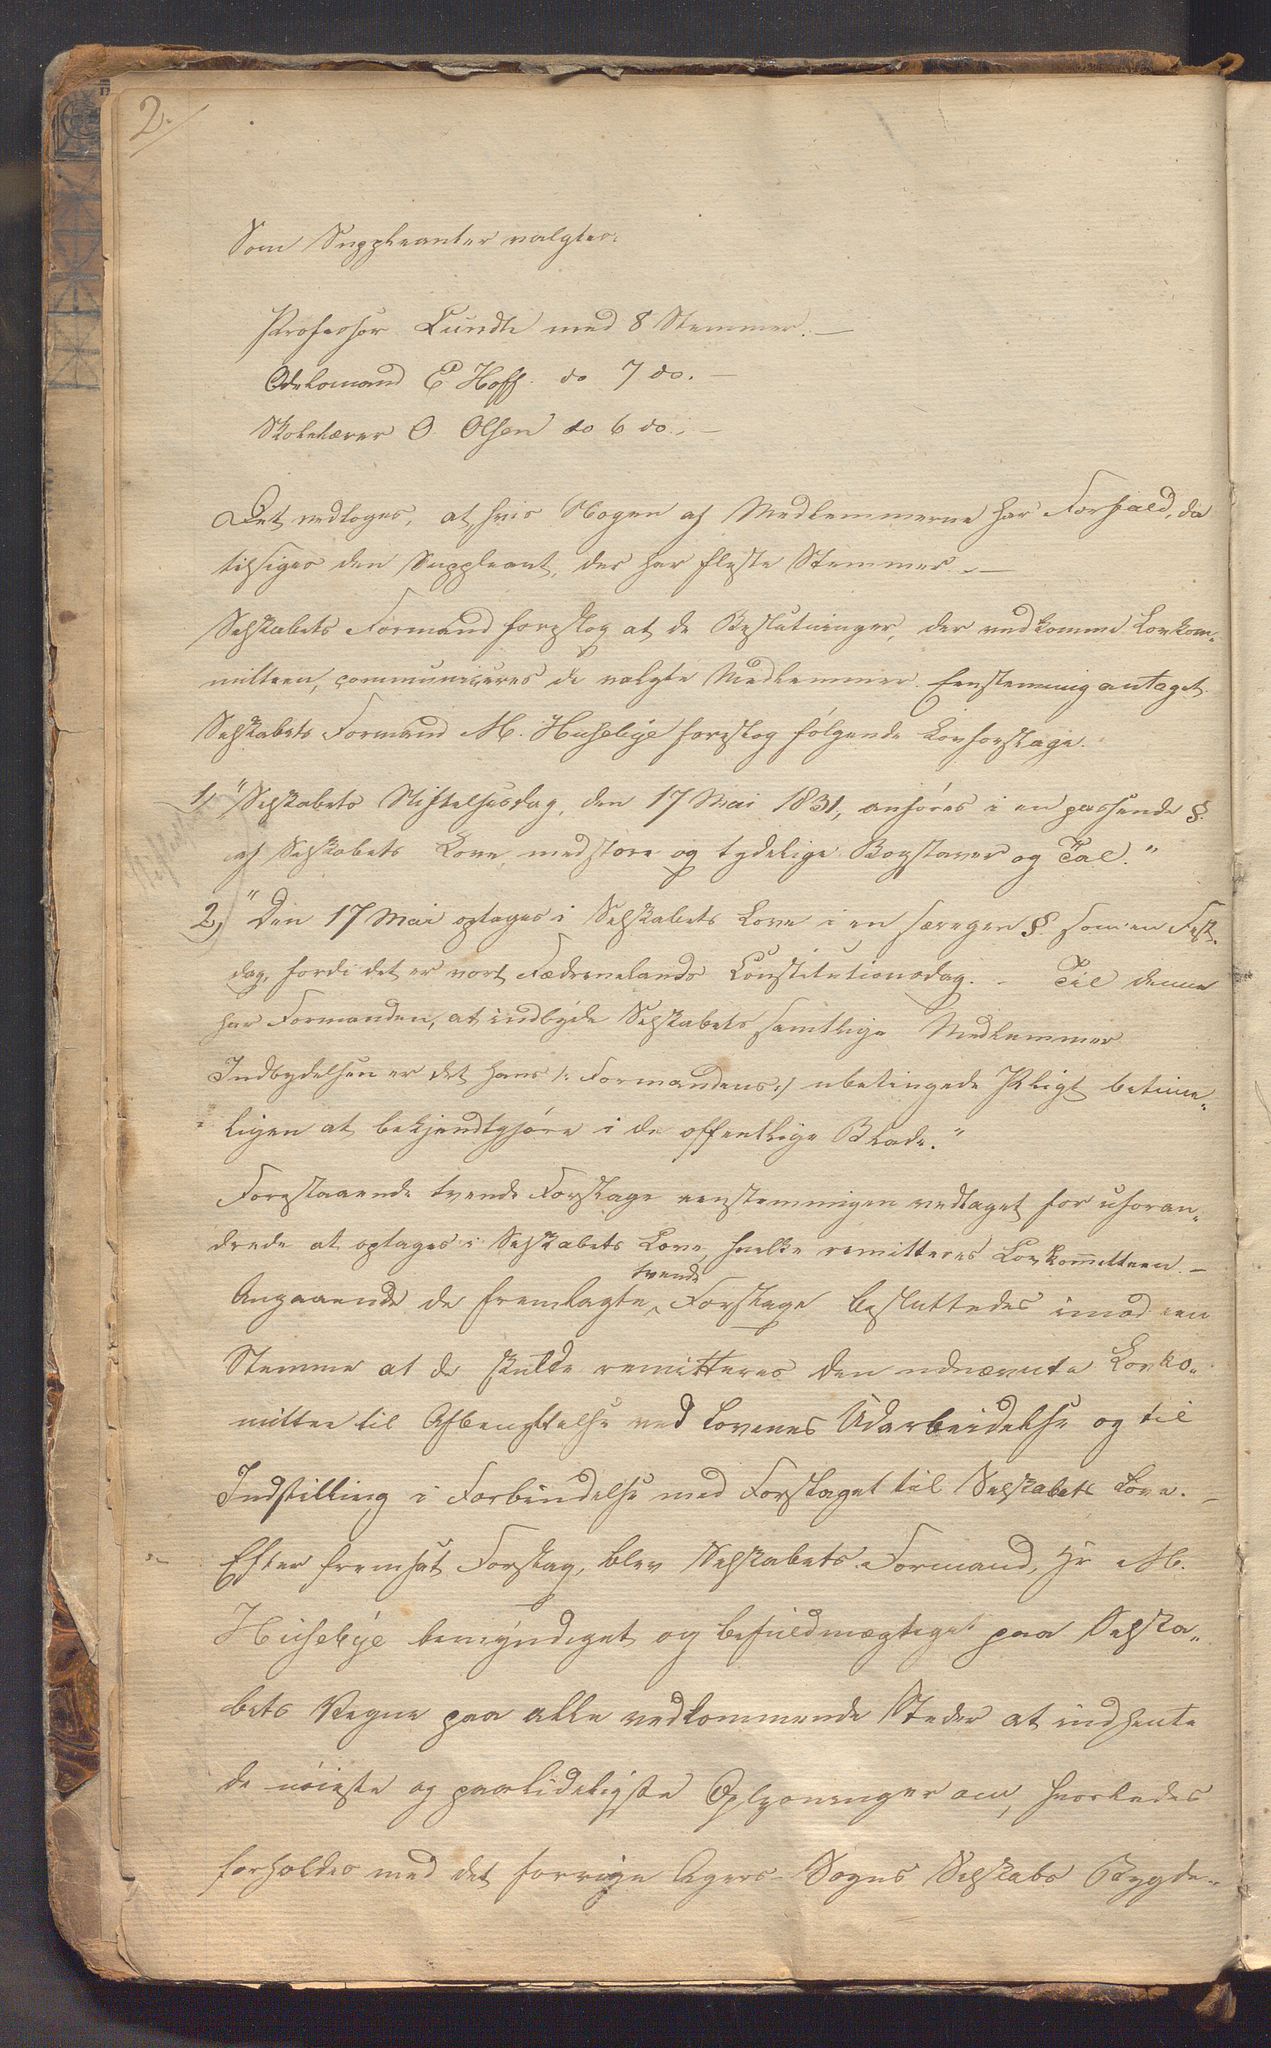 2.
Som Suppleanter valgtes:
Professor Lundh med 8 Stemmer. —
Odelsmand E Hoff. do 7 do. —
Skolelærer O. Olsen do 6 do. —
Det vedtoges, at hvis Nogen af Medlemmerne har Forfald, da
tilsiges den Suppleant, der har fleste Stemmer. —
Selskabets Formand foreslog at de Beslutninger, der vedkomme Lovkom-
mitteen, communiceres de valgte Medlemmer. Eenstemmig antaget.
Selskabets Formand M. Husebye foreslog følgende Lovforslage.
1) "Selskabets Stiftelsesdag, den 17 Mai 1831, anføres i en passende §.
af Selskabets Love, med store og tydelige Bogstaver og Tal."
2) "Den 17 Mai optages i Selskabets Love i en særegen § som en Fest-
dag, fordi det er vort Fædrenelands Constitutionsdag. - Til denne
har Formanden, at indbyde Selskabets samtlige Medlemmer
Indbydelsen er det hans /: Formandens :/ ubetingede Pligt betime-
ligen at bekjendtgjøre i de offentlige Blade."
Forestaaende tvende Forslage eenstemmigen vedtaget for uforan-
drede at optages i Selskabets Love, hvilke remitteres Lovkommitteen. —
Angaaende de fremlagte tvende Forslage besluttedes imod een
Stemme at de skulde remitteres den udnævnte Lovko-
mittee til Afbenyttelse ved Lovenes Udarbeidelse og til
Indstilling i Forbindelse med Forslaget til Selskabets Love. —
Efter fremsat Forslag, blev Selskabets Formand, Hr M.
Husebye bemyndiget og befuldmægtiget paa Selska-
bets Vegne paa alle vedkommende Steder at indhente
de nøieste og paalideligste Oplysninger om, hvorledes
forholdes med det forrige Agers-Sogns Selskabs Bygde-